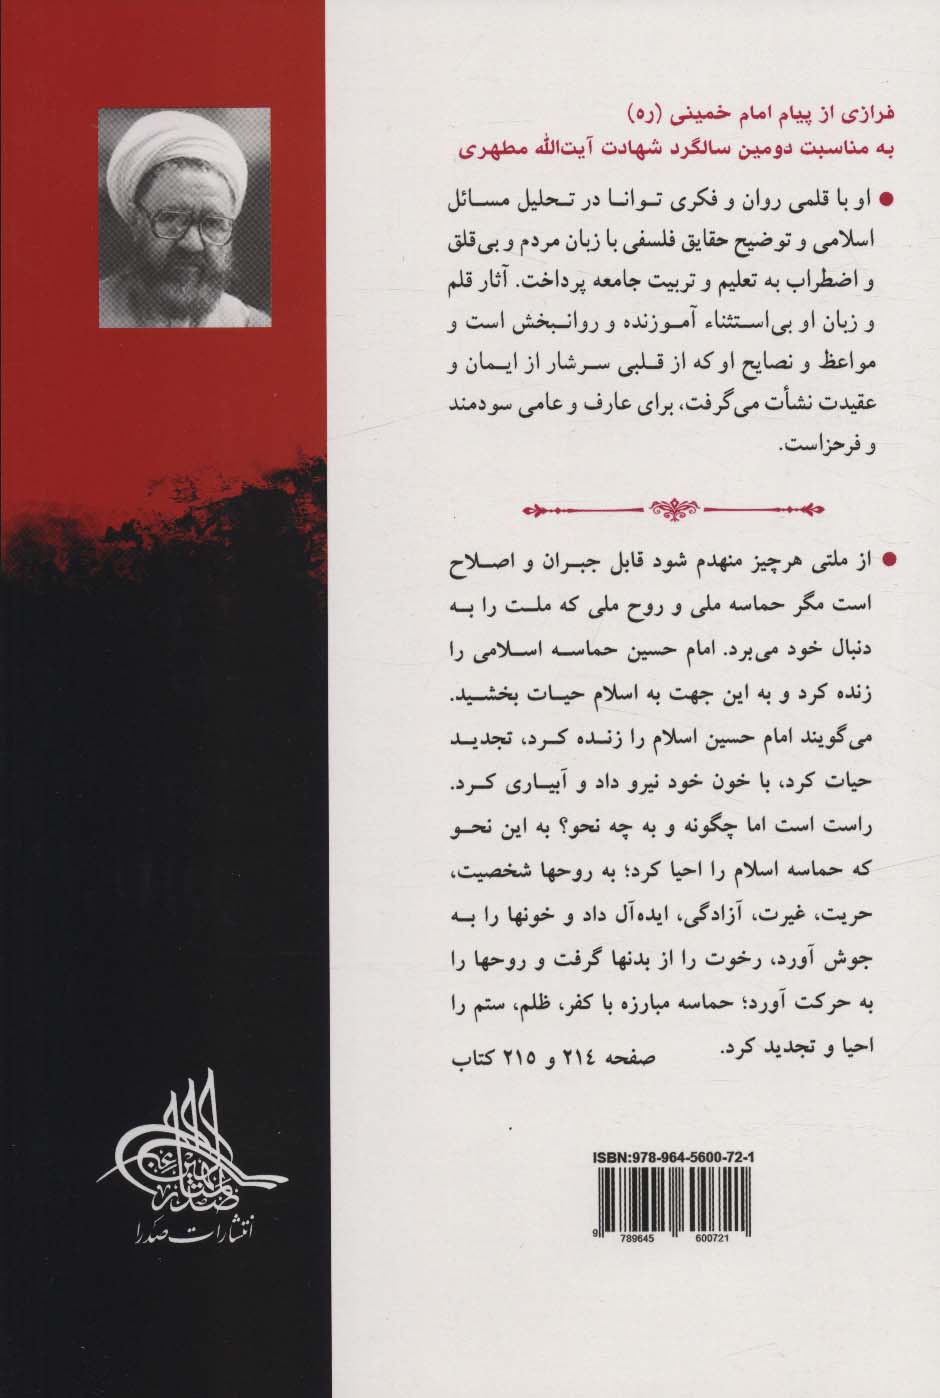 فرازی از پیام امام خمینی (ره)
به مناسبت دومین سالگرد شهادت آیت‌الله مطهری
● او با قلمی روان و فکری توانا در تحلیل مسائل
اسلامی و توضیح حقایق فلسفی با زبان مردم و بی‌قلق
و اضطراب به تعلیم و تربیت جامعه پرداخت. آثار قلم
و زبان او بی‌استثناء آموزنده و روانبخش است و
مواعظ و نصایح او که از قلبی سرشار از ایمان و
عقیدت نشأت می‌گرفت، برای عارف و عامی سودمند
و فرحزاست.
● از ملتی هرچیز منهدم شود قابل جبران و اصلاح
است مگر حماسه ملی و روح ملی که ملت را به
دنبال خود می‌برد. امام حسین حماسه اسلامی را
زنده کرد و به این جهت به اسلام حیات بخشید.
می‌گویند امام حسین اسلام را زنده کرد، تجدید
حیات کرد، با خون خود نیرو داد و آبیاری کرد.
راست است اما چگونه و به چه نحو؟ به این نحو
که حماسه اسلام را احیا کرد؛ به روحها شخصیت،
حریت، غیرت، آزادگی، ایده‌آل داد و خونها را به
جوش آورد، رخوت را از بدنها گرفت و روحها را
به حرکت آورد؛ حماسه مبارزه با کفر، ظلم، ستم را
احیا و تجدید کرد.
صفحه ٢١٤ و ٢١٥ کتاب
ISBN:978-964-5600-72-1
9 789645 600721
انتشارات صدرا